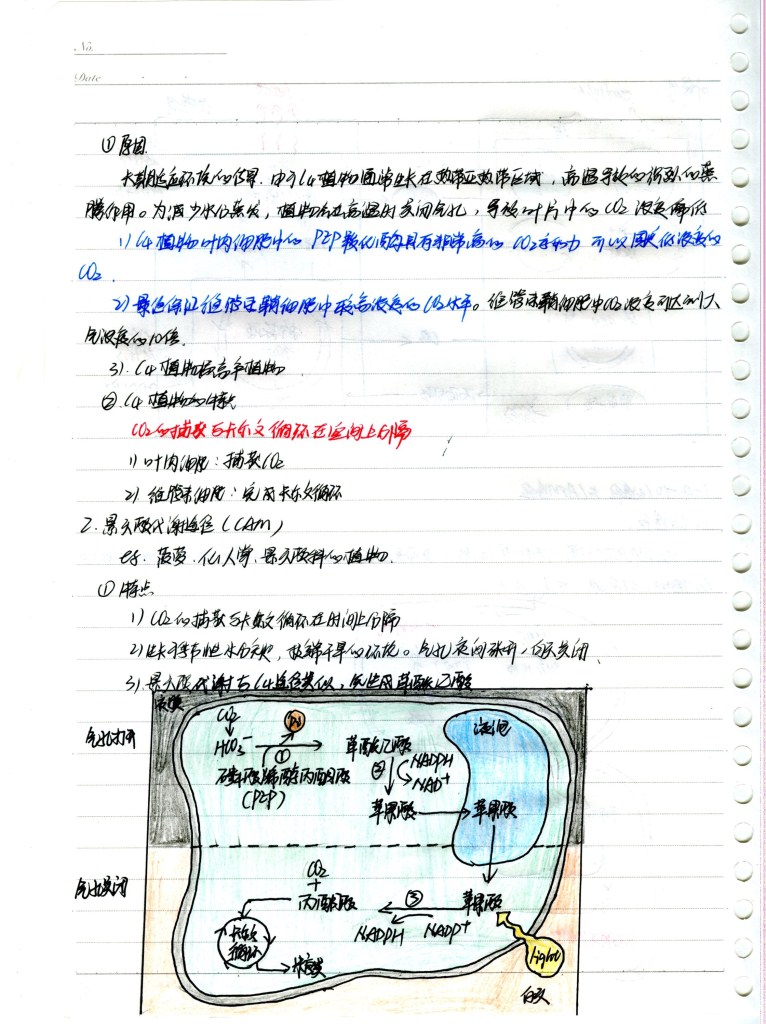 No.
Date
① 原因
长期适应环境的结果. 由于C4植物通常生长在热带亚热带区域, 高温导致的强烈的蒸
腾作用。为减少水分蒸发, 植物会在高温时关闭气孔, 导致叶片中的CO2浓度降低
1) C4植物叶肉细胞中的PEP羧化酶具有非常高的CO2亲和力 可以固定低浓度的
CO2.
2) 最终保证维管束鞘细胞中较高浓度的CO2水平。维管束鞘细胞中CO2浓度可达到大
气浓度的10倍.
3). C4植物称高效植物
②. C4植物的特点
CO2的捕获与卡尔文循环在空间上分隔
1) 叶肉细胞: 捕获CO2
2) 维管束细胞: 完成卡尔文循环
2. 景天酸代谢途径(CAM)
eg. 菠萝. 仙人掌、景天酸科的植物.
① 特点
1) CO2的捕获与卡尔文循环在时间上分隔
2) 生长于季节性水分缺, 极端干旱的环境。气孔夜间张开, 白天关闭.
3). 景天酸代谢与C4途径类似, 先生成草酰乙酸
夜晚
气孔打开
CO2
HCO3-
Pi
①
磷酸烯醇丙酮酸
(PEP)
草酰乙酸
②
NADPH
NAD+
苹果酸
液泡
苹果酸
气孔关闭
CO2
+
丙酮酸
③
苹果酸
NADPH
NADP+
卡尔文
循环
light
白天